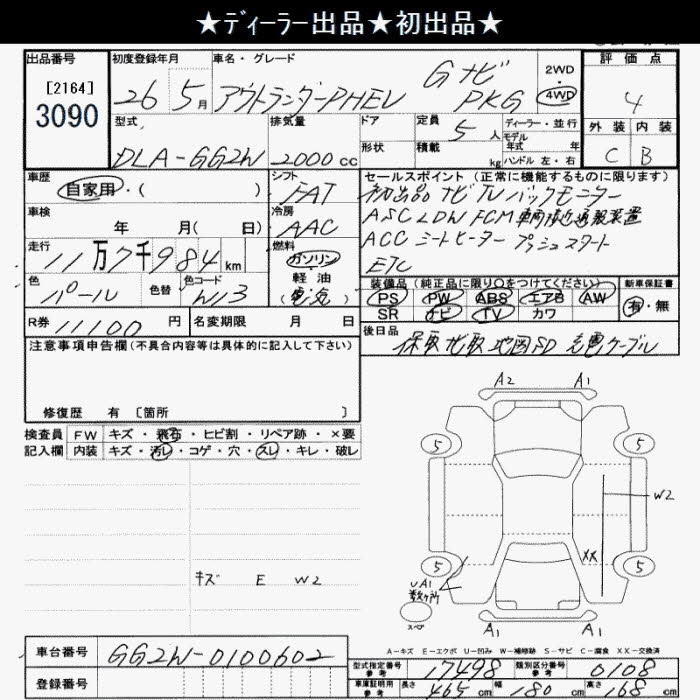 ★ディーラー出品★初出品★
出品番号
[2164]
3090
初度登録年月
26 5月
車名・グレード
アウトランダーPHEV Gナビ PKG
2WD
・
4WD
評価点
4
外装 内装
C B
型式
DLA-GG2W
排気量
2000 cc
ドア
形状
定員 5 人
積載 kg
ディーラー・並行
モデル
年式 年
ハンドル 左・右
車歴
自家用・( )
シフト
FAT
車検
年 月( 日)
冷房
AAC
走行
11万7千984km
燃料
ガソリン
・
軽油
(電気)
色
パール
色替
色コード
W13
R券 11100 円
名変期限 月 日
セールスポイント (正常に機能するものに限ります)
初出品 ナビ TV バックモニター
ASC LDW FCM 車両接近通報装置
ACC シートヒーター プッシュスタート
ETC
装備品 (純正品に限り○をつけてください)
PS PW ABS エアB AW
SR ナビ TV カワ
新車保証書
有・無
後日品
保 取 ナビ取 地図SD 充電ケーブル
注意事項申告欄(不具合内容等は具体的に記入して下さい)
修復歴 有 〔箇所 〕
検査員 FW キズ・飛石・ヒビ割・リペア跡・×要
記入欄 内装 キズ・汚レ・コゲ・穴・スレ・キレ・破レ
キズ E W2
A2 A1
5 5
W2
XX
5 5
UA1
数ヶ所
スペア
A1 A1
A-キズ E-エクボ U-凹み W-補修跡 S-サビ C-腐食 XX-交換済
車台番号 GG2W-0100602
登録番号
型式指定番号
参考
17498
類別区分番号
参考
0108
車庫証明用
参考
長さ 465 cm 幅 180 cm 高さ 168 cm